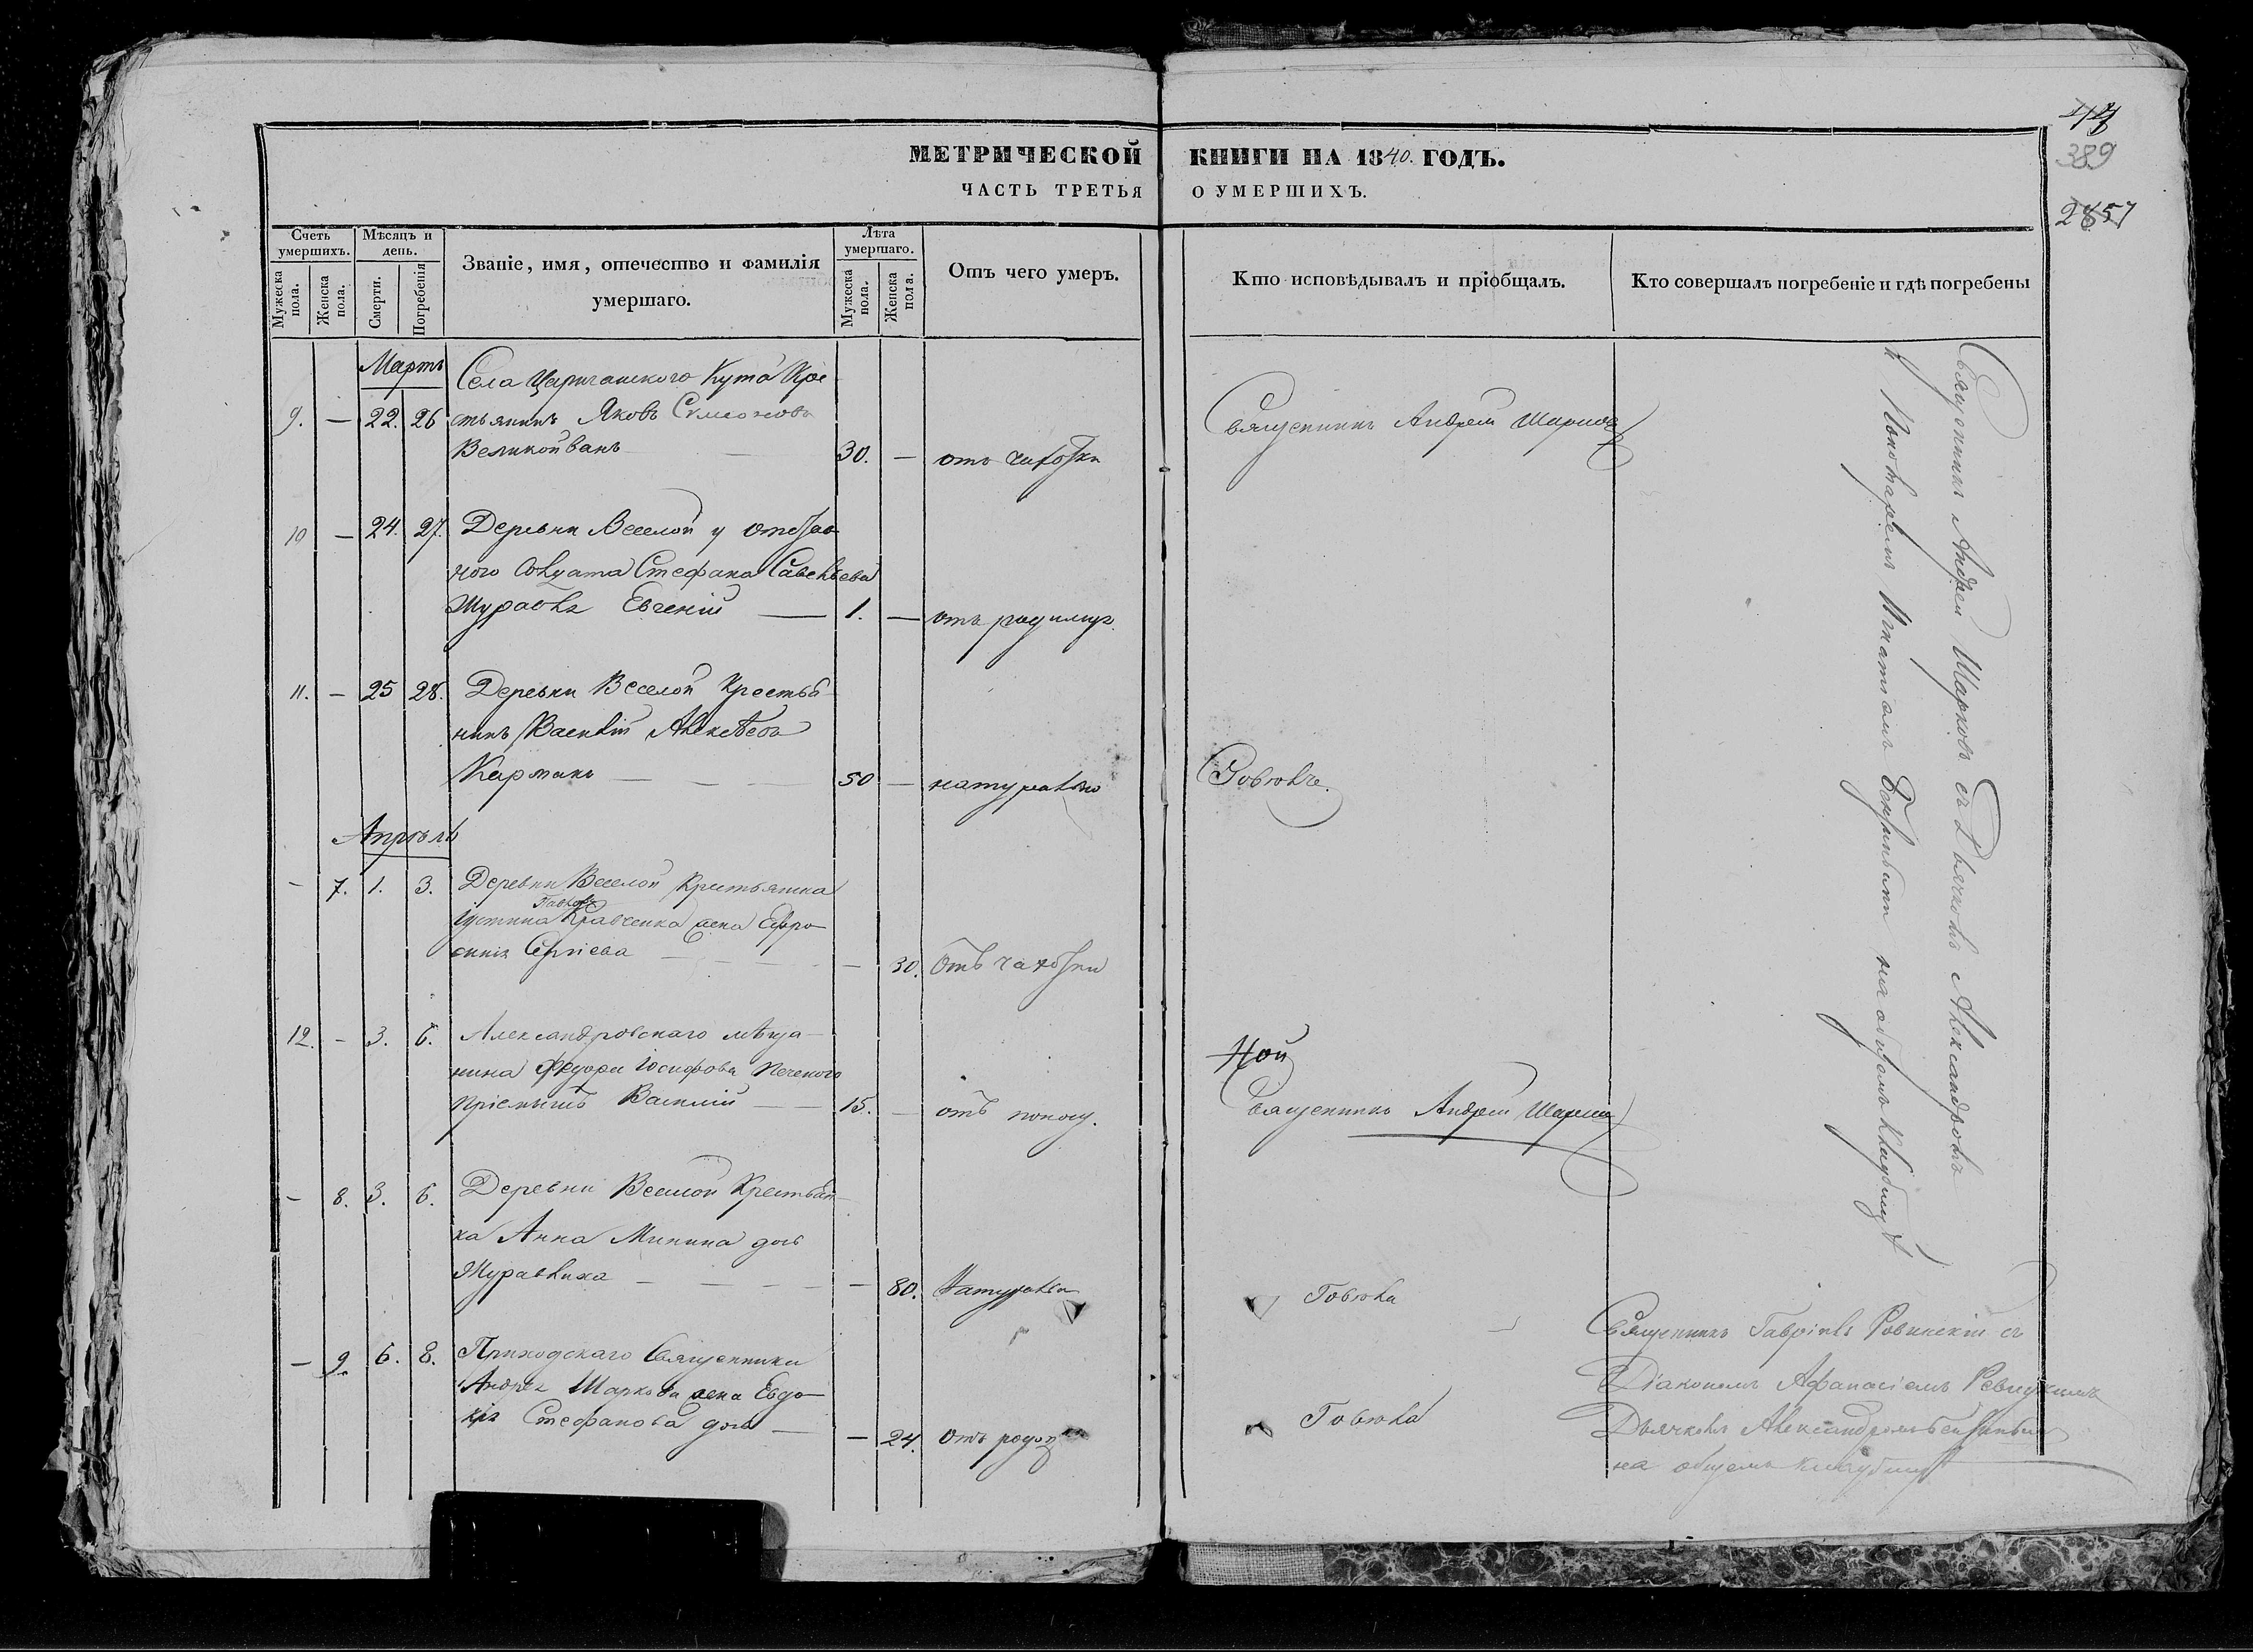 389
2857
МЕТРИЧЕСКОЙ КНИГИ НА 1840. ГОДЪ.
ЧАСТЬ ТРЕТЬЯ О УМЕРШИХЪ.
Счетъ умершихъ.
Мужеска пола.
Женска пола.
Мѣсяцъ и день.
Смерти.
Погребенія
Званіе, имя, отечество и фамилія
умершаго.
Лѣта умершаго.
Мужеска пола.
Женска пола.
Отъ чего умеръ.
Кто исповѣдывалъ и пріобщалъ.
Кто совершалъ погребеніе и гдѣ погребены
Мартъ
Села Царичанского Кута Кре
9. — 22. 26 стьянинъ Яковъ Симоновъ
Великойванъ 30. — отъ чахотки
Священникъ Андрей
10 — 24. 27. Деревни Веселой у отстав
ного Солдата Стефана Савельева
Журавля Евгеній — 1. — отъ родимца
11. — 25 28. Деревни Веселой Крестья
нинъ Василій Алексѣевъ
Карманъ — 50 — натурально
Апрѣль
— 7. 1. 3. Деревни Веселой Крестьянина
Іустина Павлова Кравченка жена Евфро
синія Сергіева — 30. Отъ чахотки
12. — 3. 6. Александровскаго мѣща
нина Феодора Іосифова
пріемышъ Василій — 15. — отъ
Той
Священникъ Андрей
— 8. 3. 6. Деревни Веселой Крестьян
ка Анна Минина дочь
Журавлиха — 80. Натурально
— 9. 6. 8. Приходскаго Священника
Андрея Шаркова жена Евдо
кія Стефанова дочь — 24. Отъ родовъ
Священникъ Андрей Шарковъ съ Дьячкомъ Александромъ
и Пономаремъ Игнатіемъ на общемъ кладбищѣ
Священникъ Гавріилъ съ
Діакономъ Афанасіемъ
Дьячкомъ Александромъ
на общемъ кладбищѣ